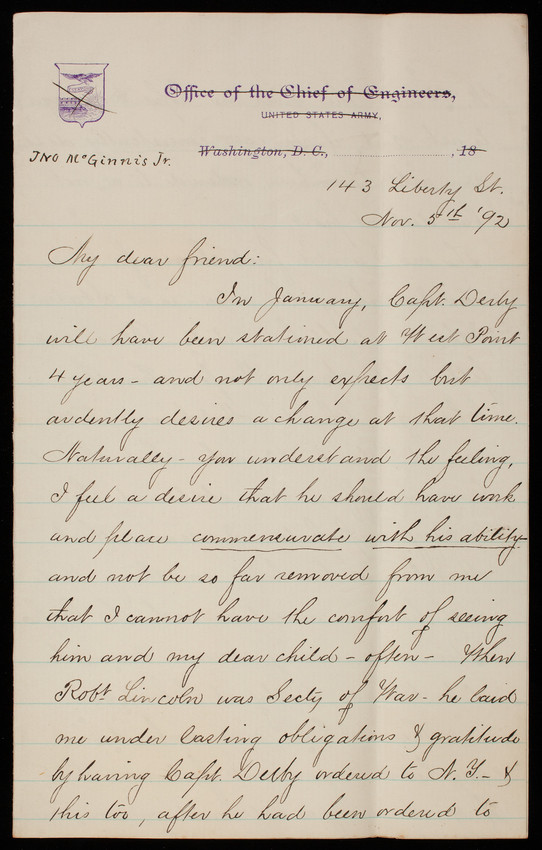 Office of the Chief of Engineers,
UNITED STATES ARMY,
Jno McGinnis Jr.
Washington, D. C., , 18
143 Liberty St.
Nov. 5th '92
My dear friend:
In January, Capt. Derby
will have been stationed at West Point
4 years - and not only expects but
ardently desires a change at that time.
Naturally - you understand the feeling,
I feel a desire that he should have work
and place commensurate with his ability
and not be so far removed from me
that I cannot have the comfort of seeing
him and my dear child - often - When
Robt Lincoln was Secty of War - he laid
me under lasting obligations & gratitude
by having Capt. Derby ordered to N.Y. - &
this too, after he had been ordered to